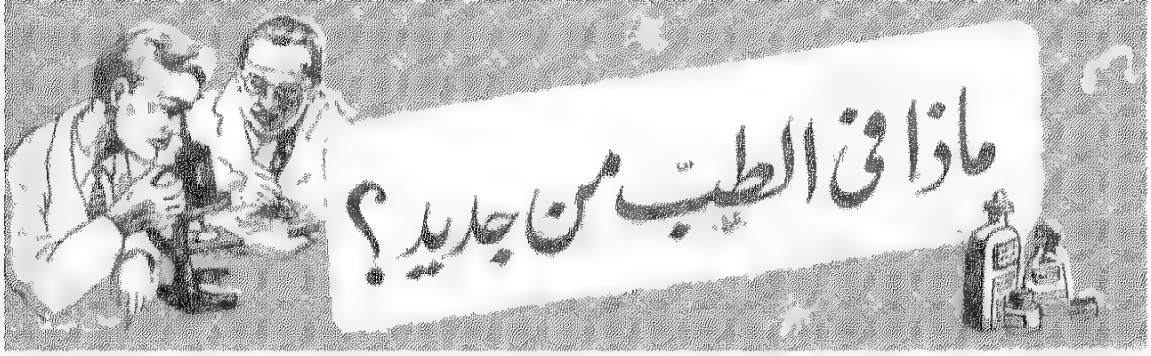 ماذا فى الطب من جديد ؟